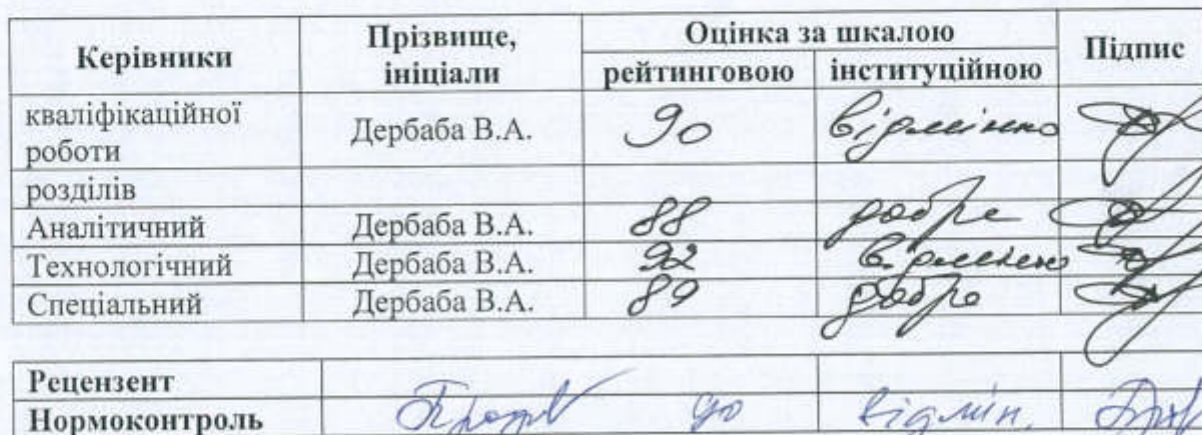 Керівники Прізвище, ініціали Оцінка за шкалою Підпис
рейтинговою інституційною
кваліфікаційної роботи Дербаба В.А. 90 відмінно
розділів
Аналітичний Дербаба В.А. 88 добре
Технологічний Дербаба В.А. 92 відмінно
Спеціальний Дербаба В.А. 89 добре
Рецензент
Нормоконтроль 90 відмін.